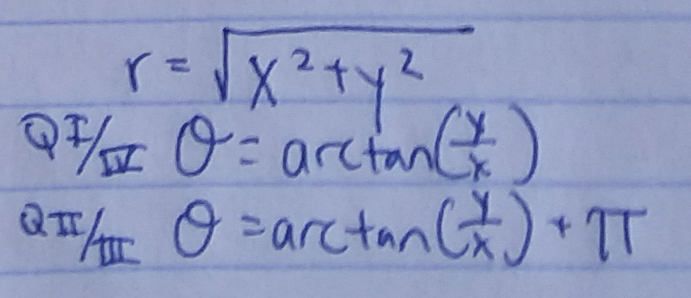 r = √(x² + y²)
QI/IV θ = arctan(y/x)
QII/III θ = arctan(y/x) + π